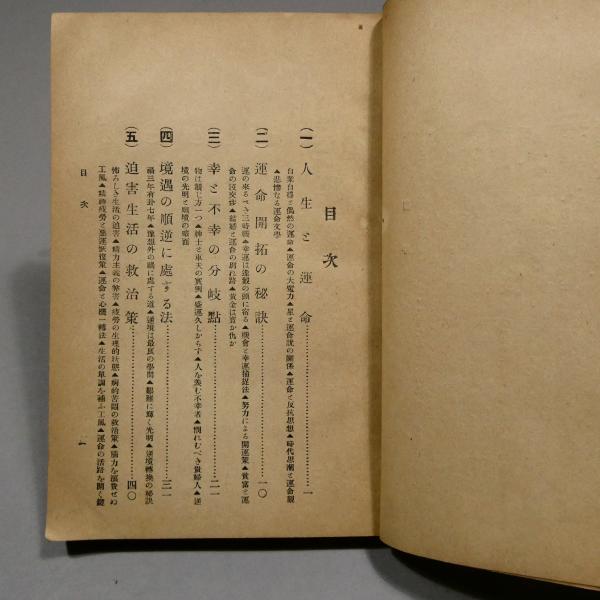 目次
(一)人生と運命……一
自業自得と偶然の運命▲運命の大魔力▲星と運命說の關係▲運命と反抗思想▲時代思潮と運命觀
▲悲慘なる運命文學
(二)運命開拓の秘訣……一〇
運の來るべき三時機▲幸運は達觀の頭に宿る▲機會と幸運捕捉法▲努力による開運策▲貧富と運
命の沒交涉▲結婚と運命の別れ路▲黃金は寶か仇か
(三)幸と不幸の分岐點……二一
物は感じ方一つ▲紳士と車夫の實例▲盛運久しからず▲人を羨む不幸者▲憫れむべき貴婦人▲逆
境の光明と順境の暗面
(四)境遇の順逆に處する法……三一
禍三年有卦七年▲豫想外の禍に處する道▲逆境は最良の學問▲艱難に輝く光明▲逆境轉換の秘訣
(五)迫害生活の救治策……四〇
怖ろしき生活の迫害▲精力主義の弊害▲疲勞の生理的狀態▲病的苦悶の救治策▲腦力を濫費せぬ
工風▲精神疲勞と惡運恢復策▲運命と心機一轉法▲生活の單調を補ふ工風▲運命の活路を開く鍵
目次
一